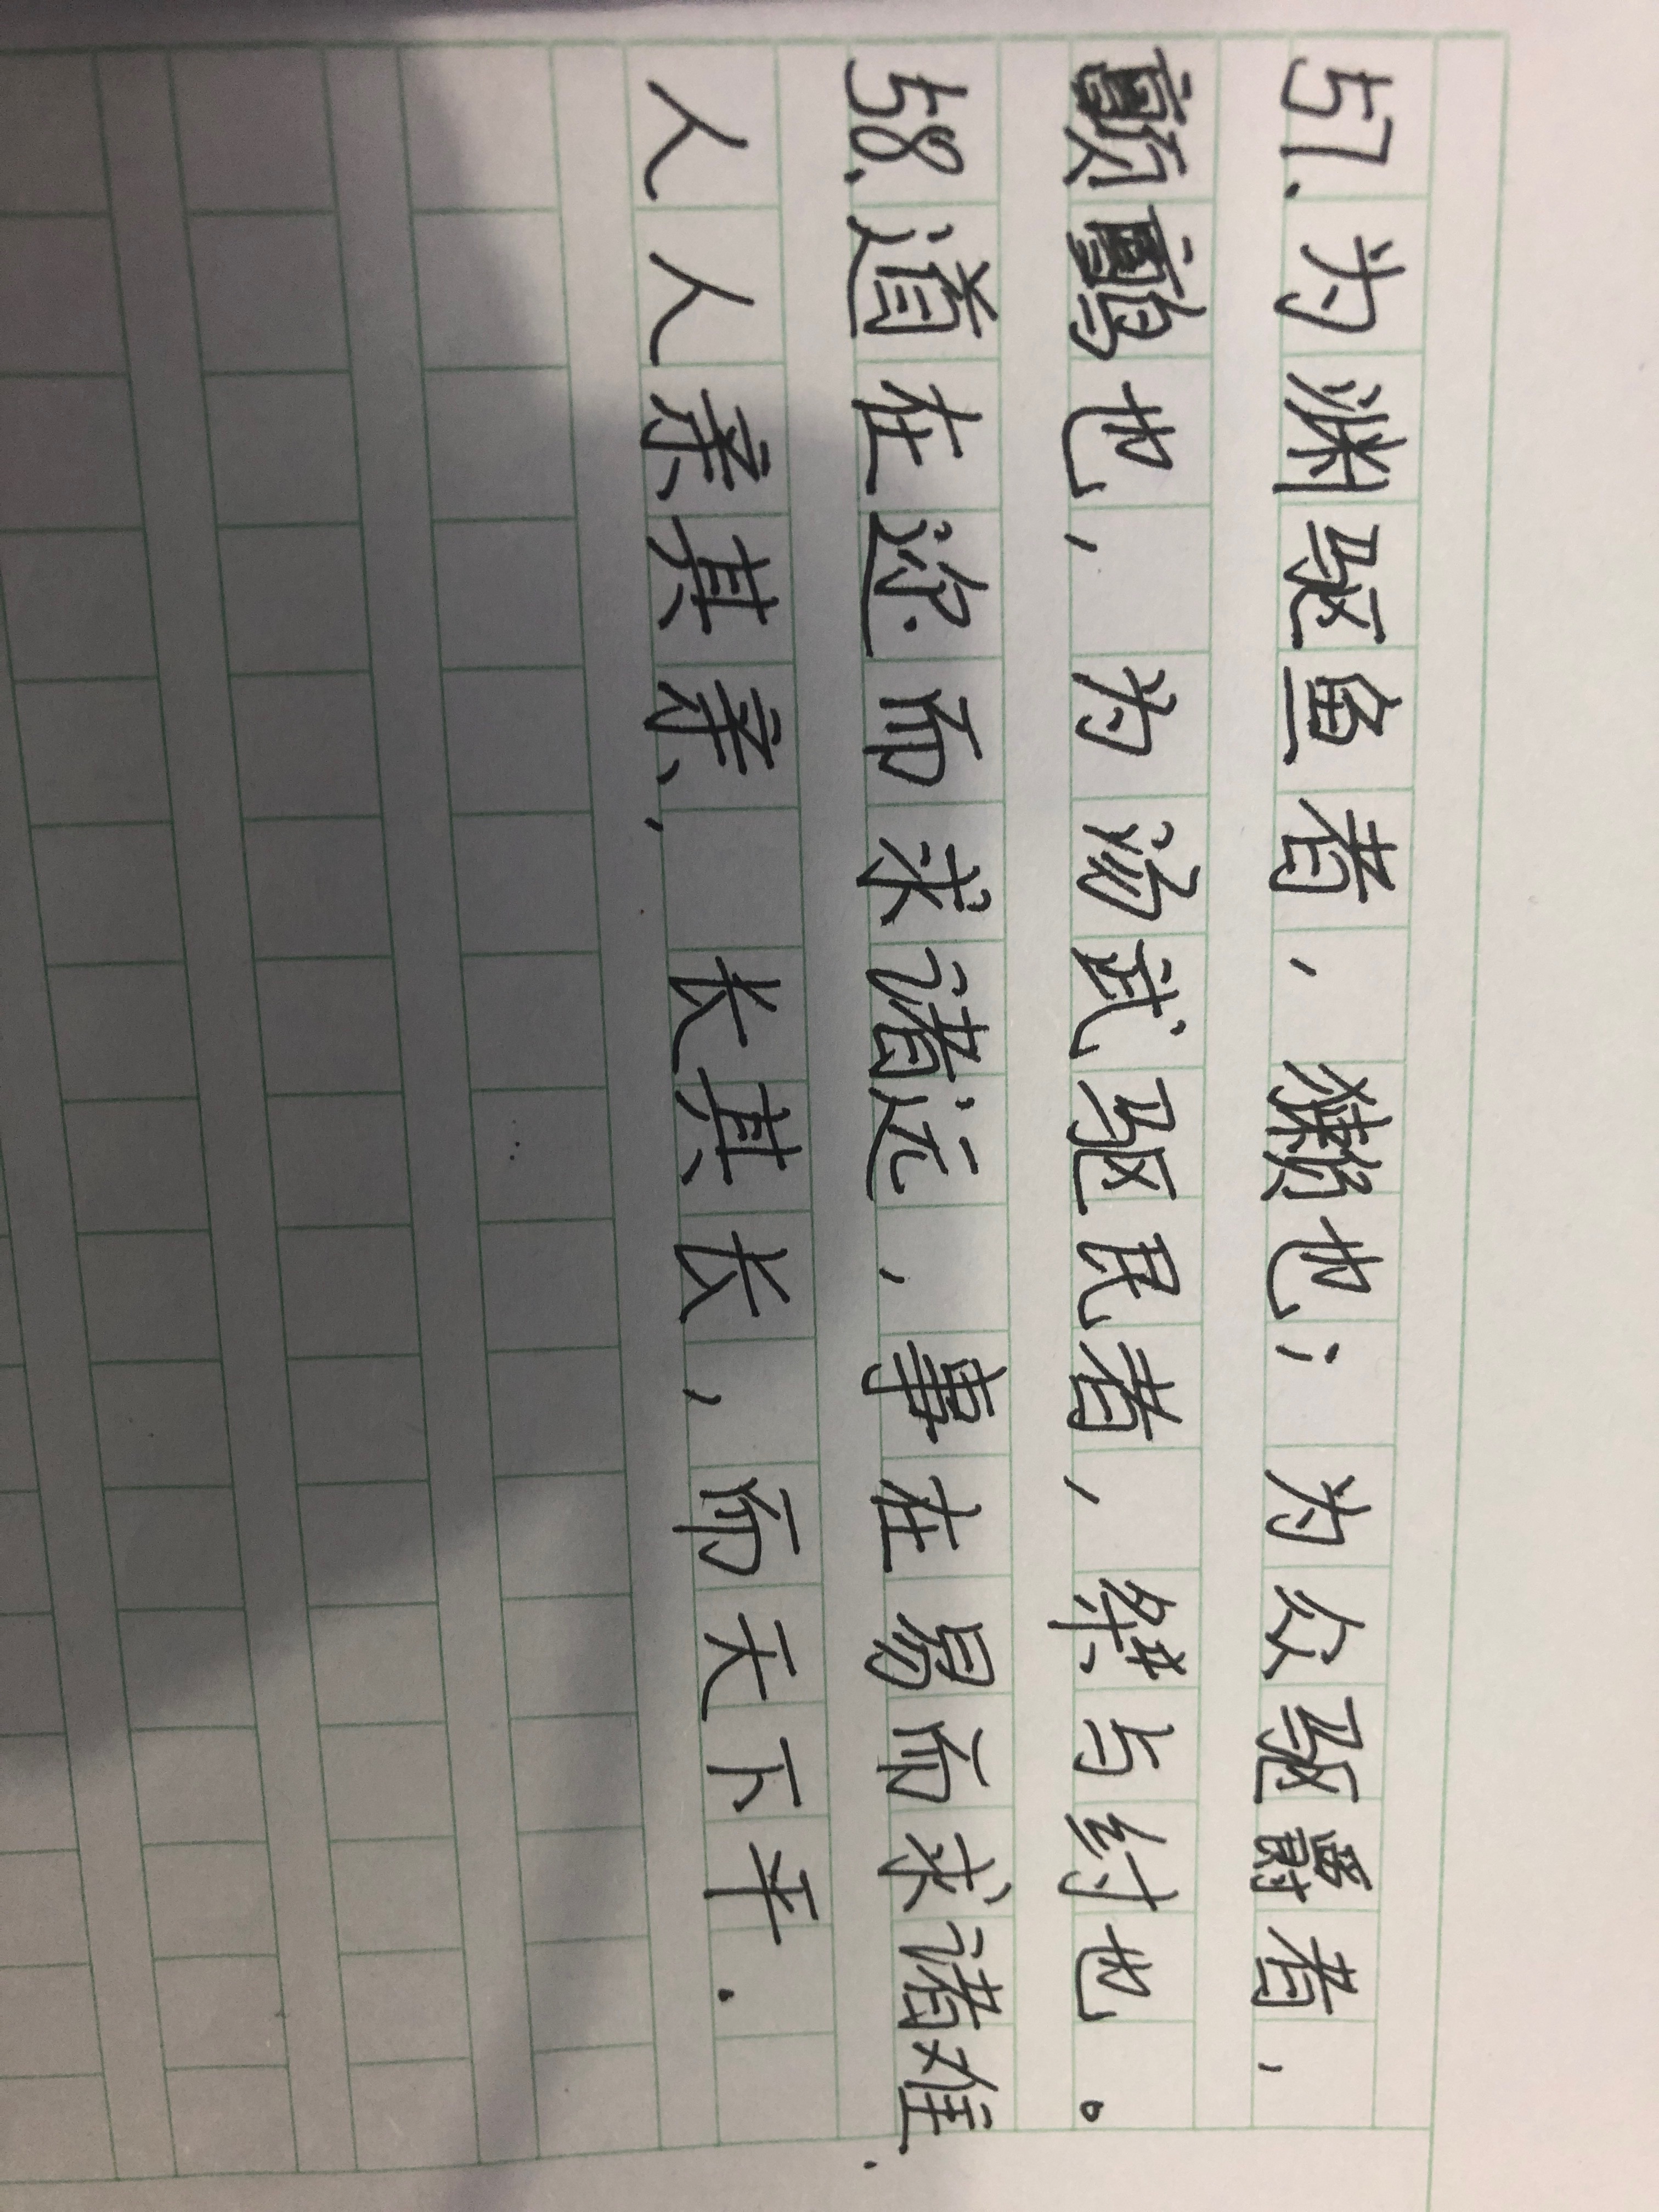 57.为渊驱鱼者,獭也;为众驱爵者,
颤鹯也,为汤武驱民者,桀与纣也。
58.道在迩而求诸远,事在易而求诸难.
人人亲其亲,长其长,而天下平.